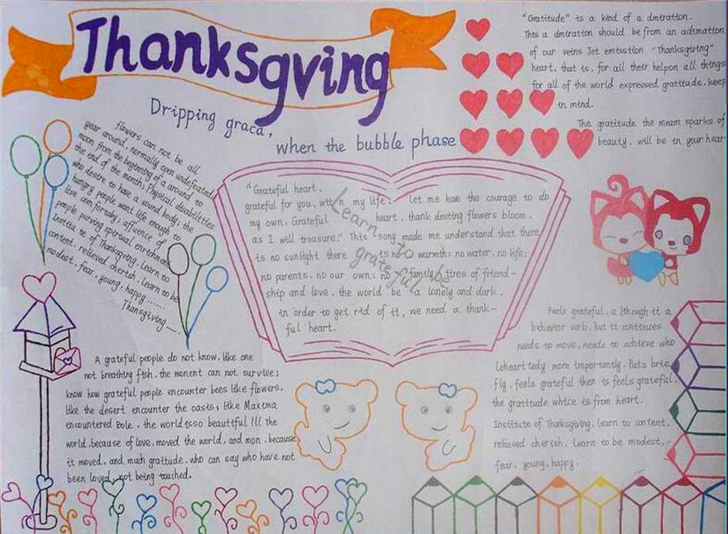 Thanksgving
Dripping graca,
when the bubble phase
"Gratitude" is a kind of a dmtration.
This a dmtration should be from an adtmation
of our veins Jet emtsction "Thanksgtvtng"
heart. that is, for all their helpon all things
for all of the world expressed gratitude. keep
in mind.
The gratitude the meam sparks of
beauty. will be in your hear
flowers can not be all
year around, normally open undefeated
moon, from the beginning of a around to
the end of the month; Physical disabilities
who desire to have a sound body; the
hungry people want life enough to
live comfortably; affluence of
people, purving spiritual enrichment
Institute of Thangsgiving. Learn to
content, relieved cherish. Learn to be
modest, fear, young, happy ......
Thangsgiving ......
"Grateful heart,
grateful for you, with my life; let me have the courage to do
my own. Grateful heart, thank desting flowers bloom,
as I will treasure." This song made me understand that there
is no sunlight there is no warmth; no water, no life;
no parents, no our own; no family tires of friend-
ship and love. the world be a lonely and dark.
in order to get rid of it, we need a thank-
ful heart.
Learn to be
grateful
A grateful people do not know, like one
not breathing fish, the monent can not survive;
know how grateful people encounter bees like flowers,
like the desert encounter the oasts; like Maxtma
encountered Bole, the worldtsso beautiful !!! the
world, because of love, moved the world, and mon, because
it moved, and much gratitude, who can say who have not
been loved, not being touched.
Feels grateful, a lthough it a
behavior verb, but it continues
needs to move, needs to achieve who
Leheart tedy more importantly. Puts brie
fly, feels grateful then is feels grateful.
the gratitude whtce is from heart.
Institute of Thanksgiving, learn to content,
relieved cherish. Learn to be modest,
fear, young, happy.